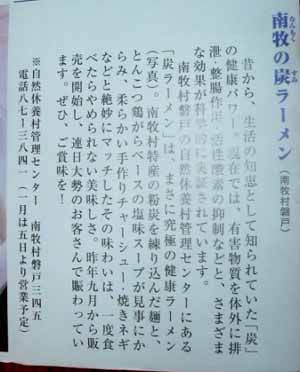 南牧の炭ラーメン（南牧村磐戸）
なんもく すみ
昔から、生活の知恵として知られていた「炭」
の健康パワー。現在では、有害物質を体外に排
泄・整腸作用・活性酸素の抑制などと、さまざま
な効果が科学的に実証されています。
南牧村磐戸の自然休養村管理センターにある
「炭ラーメン」は、まさに究極の健康ラーメン
（写真）。南牧村特産の粉炭を練り込んだ麺と、
とんこつ鶏がらベースの塩味スープが見事にか
らみ、柔らかい手作りチャーシュー・焼きネギ
などと絶妙にマッチしたその味わいは、一度食
べたらやめられない美味しさ。昨年九月から販
売を開始し、連日大勢のお客さんで賑わってい
ます。ぜひ、ご賞味を！
※自然休養村管理センター 南牧村磐戸三四五
電話八七ー三八四一（一月は五日より営業予定）